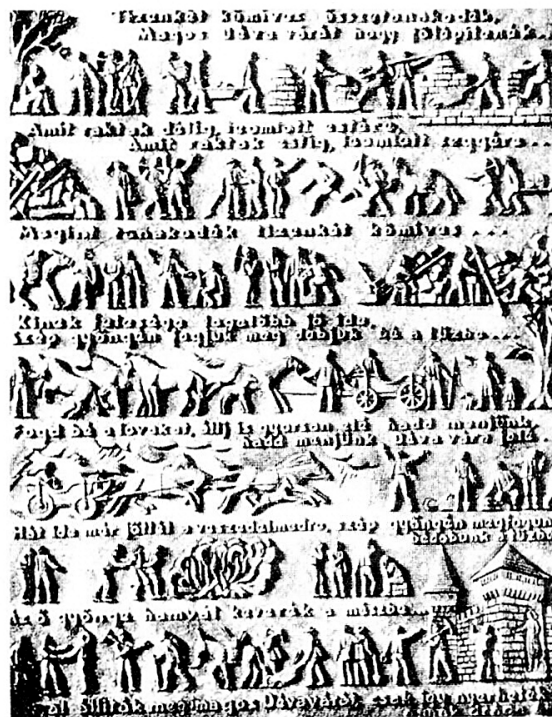 Tizenkét kőmives összetanakodék,
Magos Déva várát hogy fölépitenék..
Amit raktak délig, leomlott estére,
Amit raktak estig, leomlott reggére...
Megint tanakodék tizenkét kőmives ...
Kinek felesége legelőbb jő ide,
Szép gyöngén fogjuk meg dobjuk bé a tűzbe...
Fogd bé a lovakat, állj is gyorsan elé hadd menjünk,
hadd menjünk Déva vára felé..
Hát ide már jöttél a veszedelmedre, szép gyöngén megfogunk
bédobunk a tűzbe
Az ő gyönge hamvát keverék a mészbe...
állíták meg magos Dévavárát, csak így nyerheték
árán